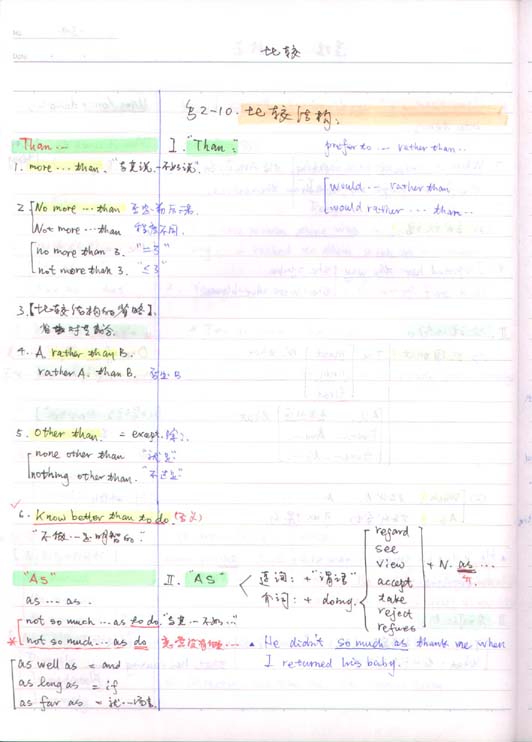 比较
§2-10. 比较结构:
Than...
I. "Than":
prefer to ... rather than..
1. more ... than. "与其说,不如说"
would ... rather than
would rather ... than..
2. No more ... than
Not more ... than 程度不同.
no more than 3. "=3"
not more than 3. "≤3"
3.【比较结构的省略】.
4. A. rather than B.
rather A. than B. 否定B
5. Other than. = except. 除.
none other than "就是"
nothing other than. "不过是"
6. Know better than to do.
"不做...是明智的."
"As"
II. "AS"
连词: + "谓语"
介词: + doing.
regard
see
view
accept
take
reject
refuses
+ N. as ...
as ... as.
not so much ... as to do. "与其...不如..."
* not so much ... as do 甚至没有做...
▲ He didn't so much as thank me when
I returned his baby.
as well as = and
as long as = if
as far as = 就...而言.